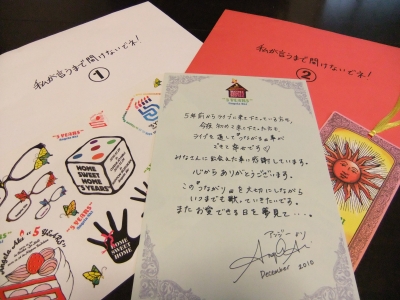 私が言うまで開けないでネ!
①
私が言うまで開けないでネ!
②
"5 YEARS"
Angela Aki
5年前からライブに来て下さっている方も、
今夜初めて来て下さった方も
ライブを通してつながる事が
できて幸せです
みなさんに出会えた事に感謝しています。
心からありがとうございます。
この"つながり"を大切にしながら
いつまでも歌っていきたいです。
またお会いできる日を夢見て・・・。
アンジー・アキ
December 2010
HOME
SWEET
HOME
"5 YEARS"
HOME
SWEET
HOME
Angela Aki "5 YEARS"